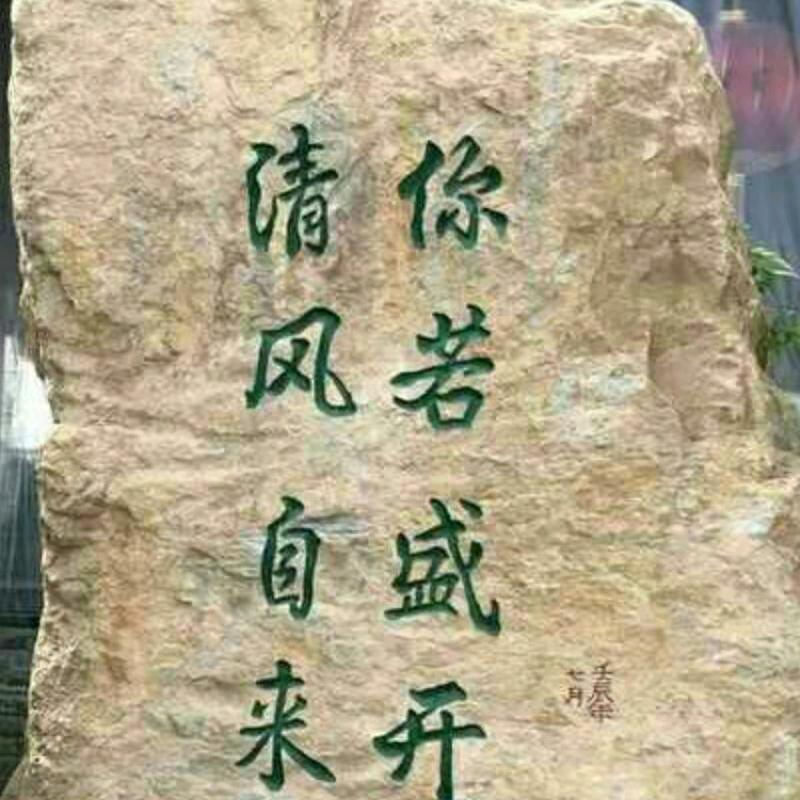 你若盛开
清风自来
壬辰年
七月